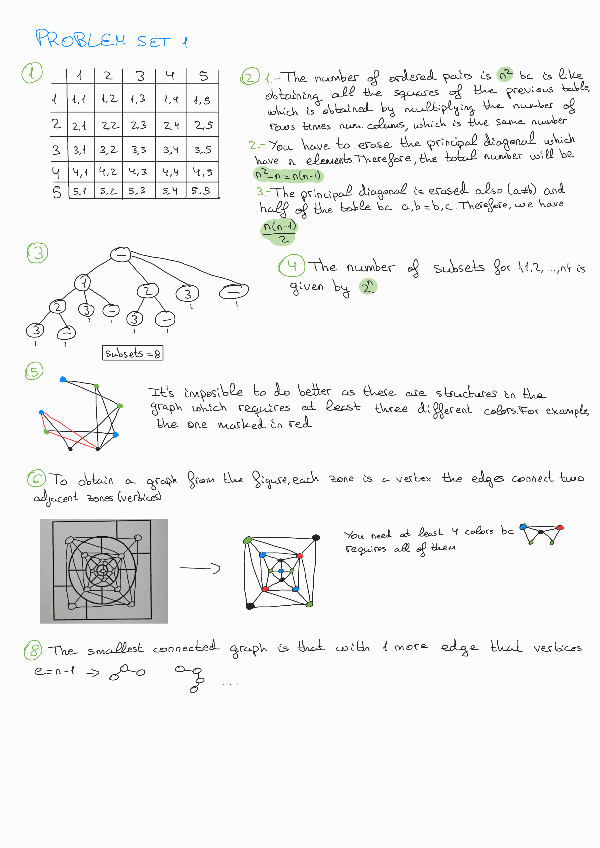 PROBLEM SET 1
1
1 2 3 4 5
1 1,1 1,2 1,3 1,4 1,5
2 2,1 2,2 2,3 2,4 2,5
3 3,1 3,2 3,3 3,4 3,5
4 4,1 4,2 4,3 4,4 4,5
5 5,1 5,2 5,3 5,4 5,5
2 1.- The number of ordered pairs is n² bc is like
obtaining all the squares of the previous table
which is obtained by multiplying the number of
rows times num. colums, which is the same number
2.- You have to erase the principal diagonal which
have n elements. Therefore, the total number will be
n²-n = n(n-1)
3.- The principal diagonal is erased also (a≠b) and
half of the table bc a,b = b,c. Therefore, we have
n(n-1)
2
3
-
1 2 3 -
2 3 - 3 -
3 -
subsets = 8
4 The number of subsets for {1,2, ..., n} is
given by 2ⁿ
5
It's imposible to do better as there are structures in the
graph which requires at least three different colors. For example,
the one marked in red
6 To obtain a graph from the figure, each zone is a vertex the edges connect two
adjacent zones (vertices)
You need at least 4 colors bc
requires all of them
8 The smallest connected graph is that with 1 more edge that vertices
e=n-1 → ...